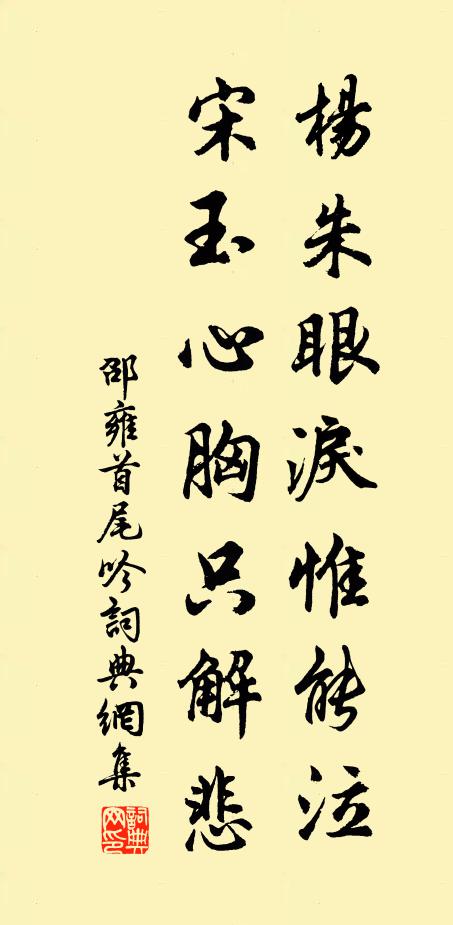 楊朱眼淚惟能泣
宋玉心胸只解悲
邵雍首尾吟詞典網集
詞典網印